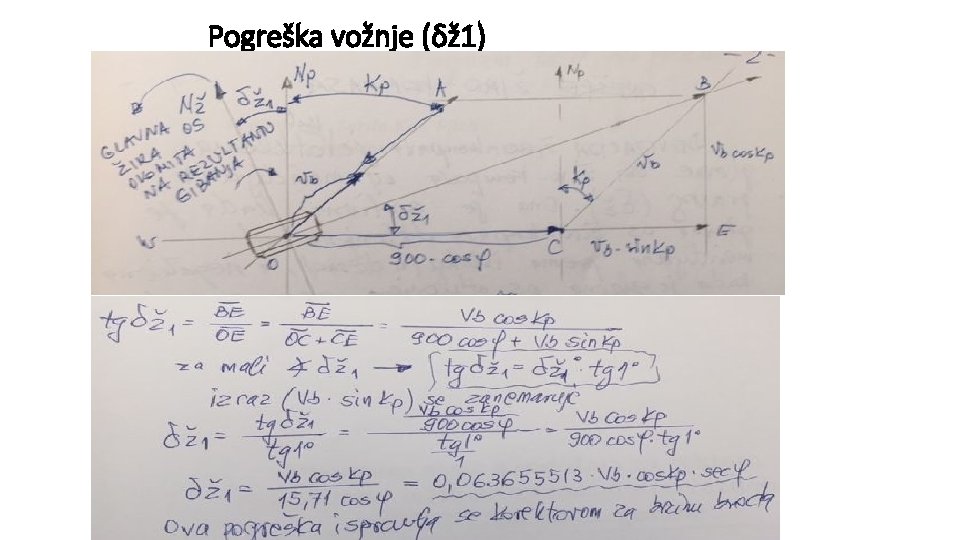 Pogreška vožnje (δž1)
Nž δž1 Np Kp A Np B
GLAVNA OS
ŽIRA
OKOMITA
NA REZULTANTU
GIBANJA
Vb Kp Vb Vb cosKp
δž1
W O 900·cosφ C Vb·sinKp E
tgδž1 = BE/OE = BE/(OC + CE) = Vb cosKp/(900 cosφ + Vb sinKp)
za mali ∢ δž1 → [tgδž1 = δž1°·tg1°]
izraz (Vb · sinKp) se zanemaruje
δž1 = tgδž1/tg1° = (Vb cosKp/900cosφ)/(tg1°/1) = Vb cosKp/(900 cosφ·tg1°)
δž1 = Vb cosKp/(15,71 cosφ) = 0,063655513·Vb·cosKp·secφ
Ova pogreška ispravlja se korektorom za brzinu broda